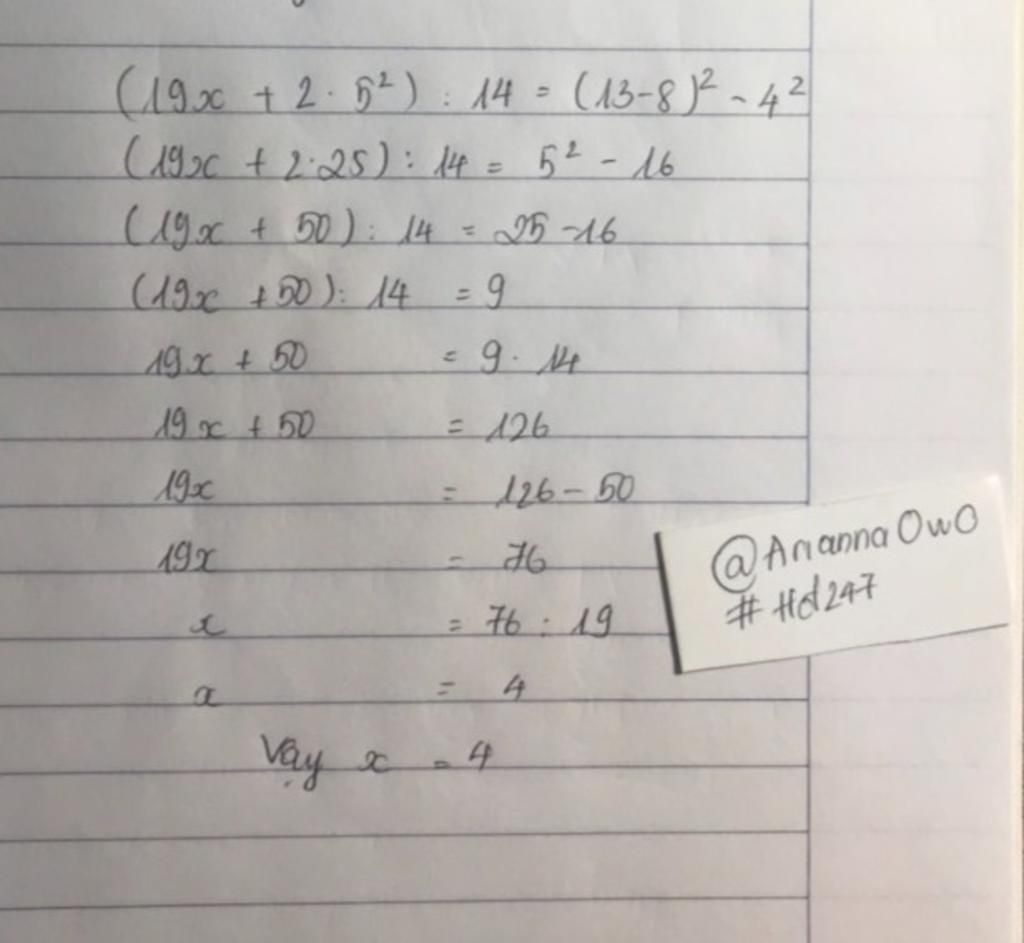 (19x + 2 · 5²) : 14 = (13-8)² - 4²
(19x + 2·25) : 14 = 5² - 16
(19x + 50) : 14 = 25 - 16
(19x + 50) : 14 = 9
19x + 50 = 9 · 14
19x + 50 = 126
19x = 126 - 50
19x = 76
x = 76 : 19
x = 4
Vậy x = 4
@AriannaOwO
#Hd247